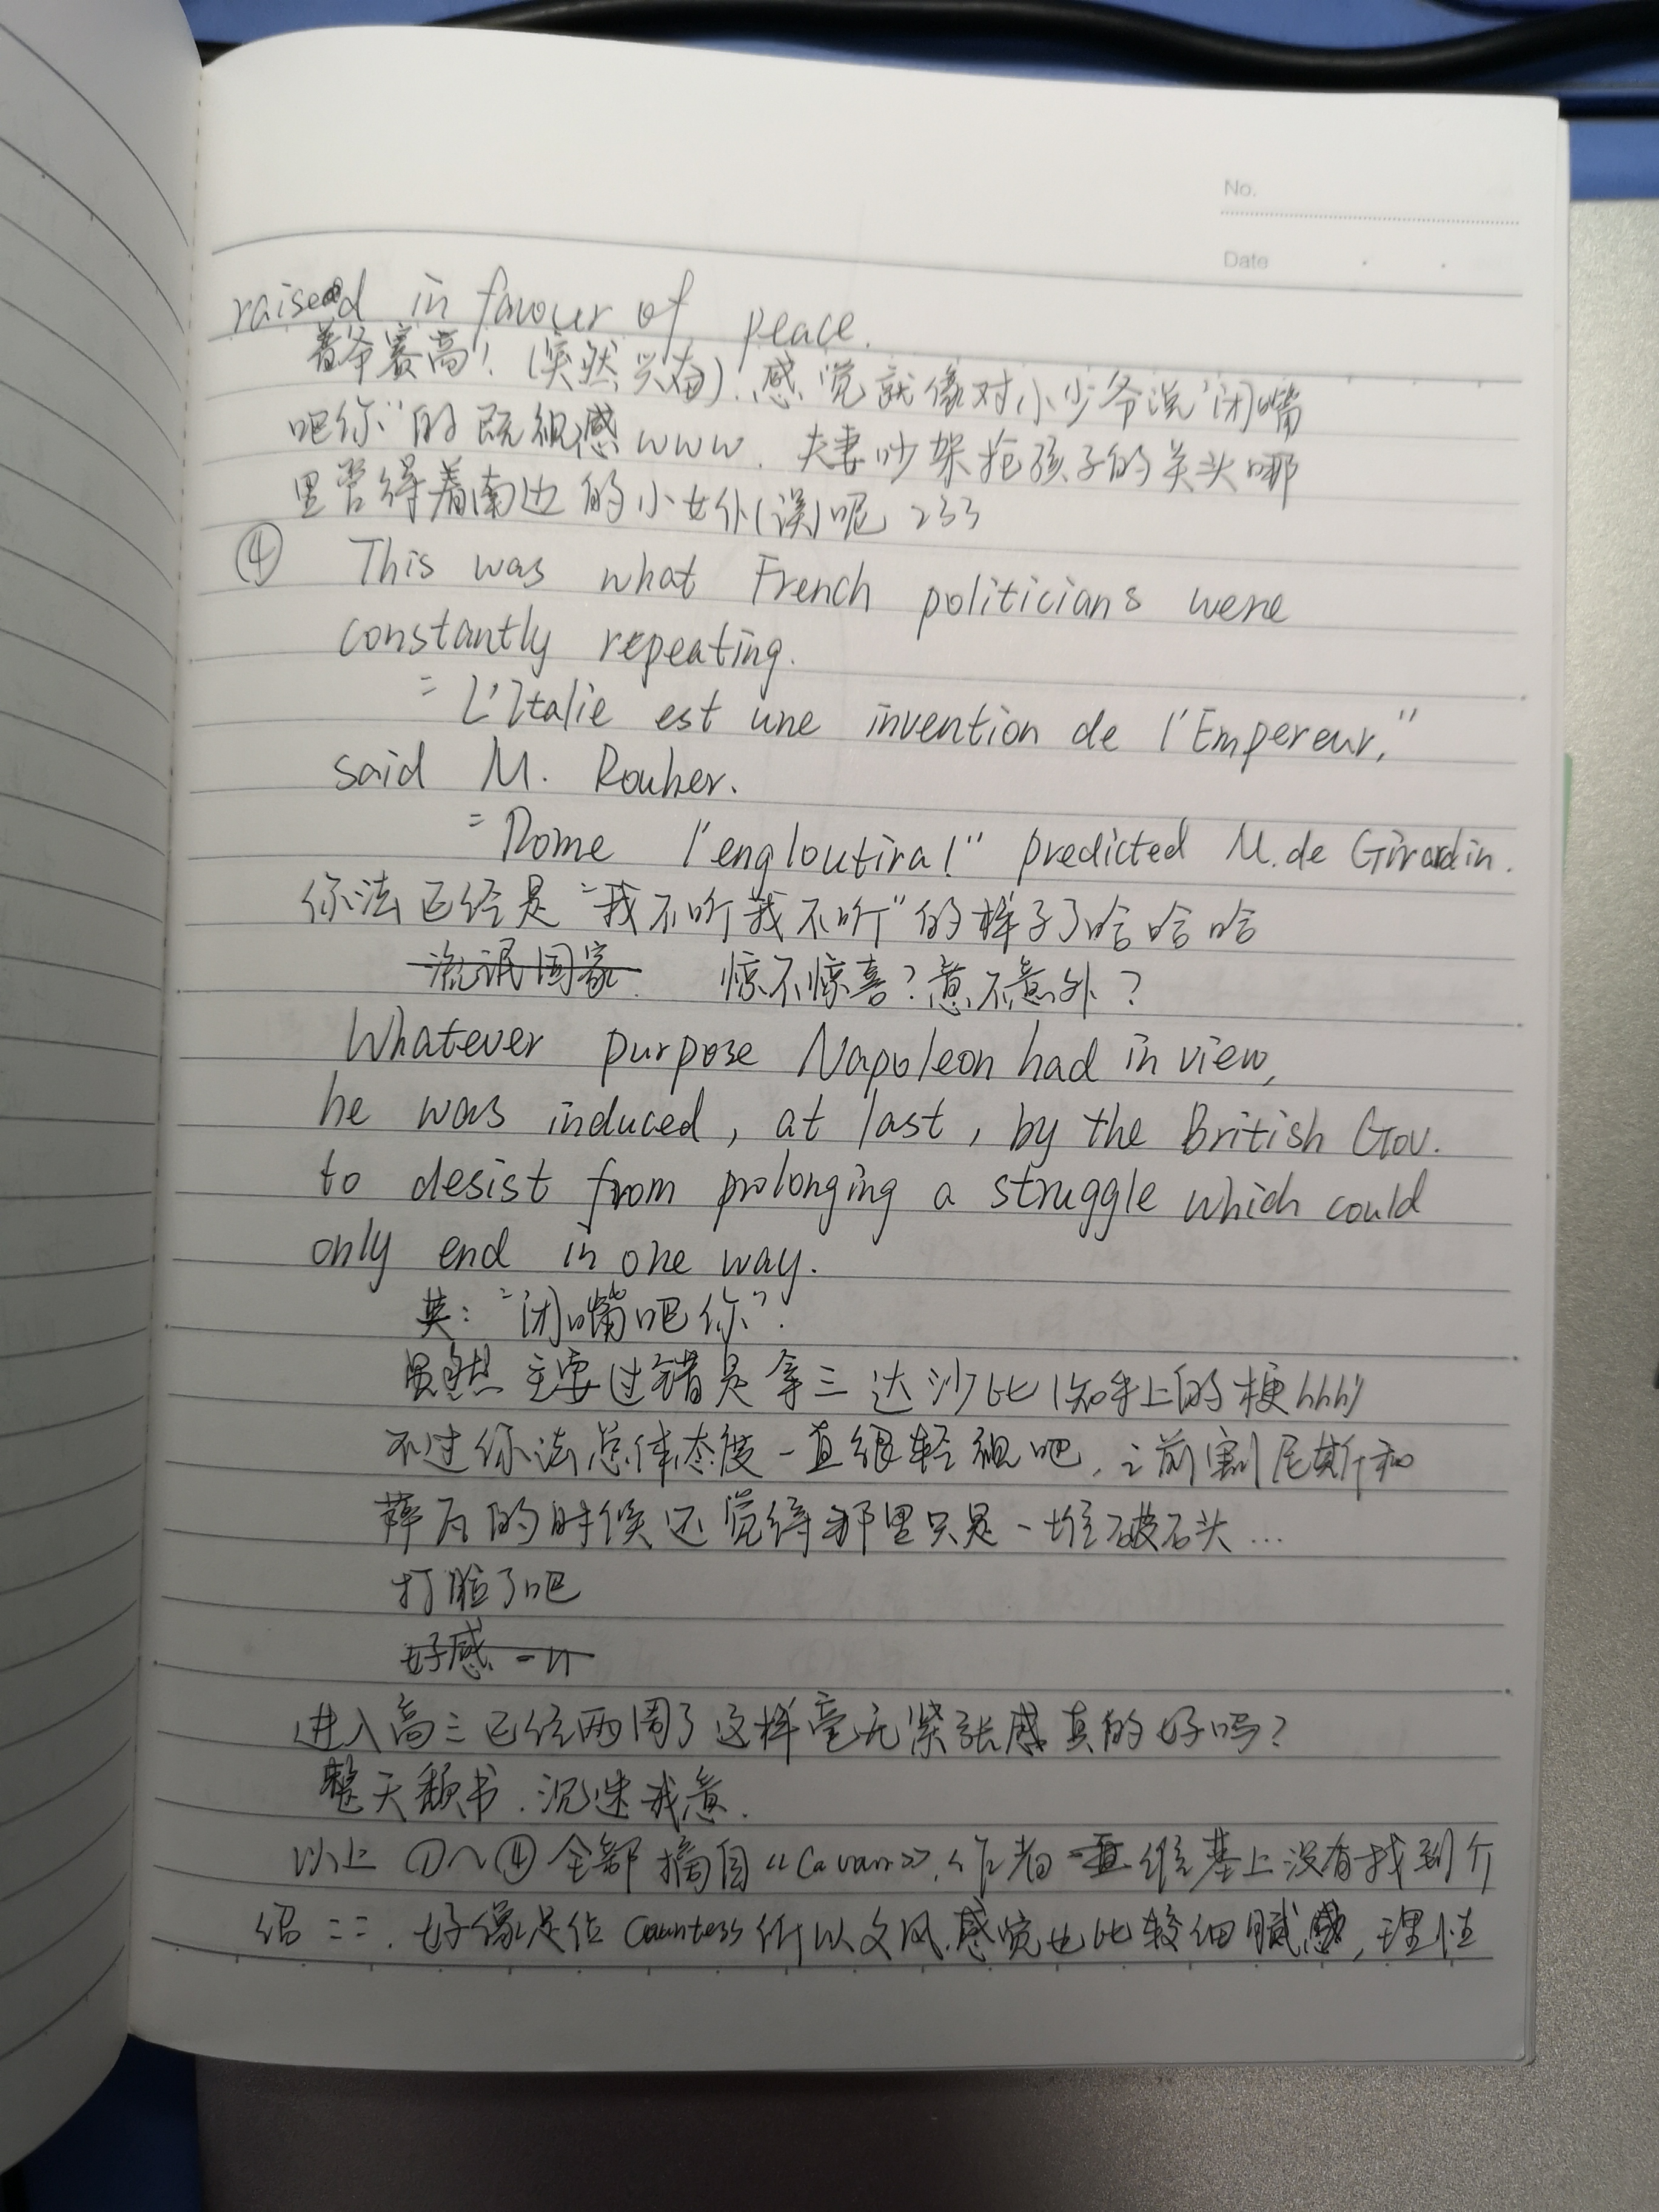 No.
Date
raised in favour of peace.
普爷赛高！（突然兴奋）.感觉就像对小少爷说“闭嘴
吧你”的既视感www. 夫妻吵架抢孩子的关头哪
里管得着南边的小女仆(误)呢 233
④ This was what French politicians were
constantly repeating.
"L'Italie est une invention de l'Empereur,"
said M. Rouher.
"Rome l'engloutira!" predicted M. de Girardin.
你法已经是“我不听我不听”的样子了哈哈哈
流氓国家. 惊不惊喜？意不意外？
Whatever purpose Napoleon had in view,
he was induced, at last, by the British Gov.
to desist from prolonging a struggle which could
only end in one way.
英：“闭嘴吧你”.
虽然主要过错是拿三达沙比(知乎上的梗hhh)
不过你法总体态度一直很轻视吧, 之前割尼斯和
萨瓦的时候还觉得那里只是一堆破石头…
打脸了吧
好感 -n
进入高三已经两周了这样毫无紧张感真的好吗？
整天翻书.沉迷我意.
以上①~④全部摘自《Cavour》.作者一直维基上没有找到介
绍 ==. 好像是位Countess所以文风.感觉也比较细腻感, 理性